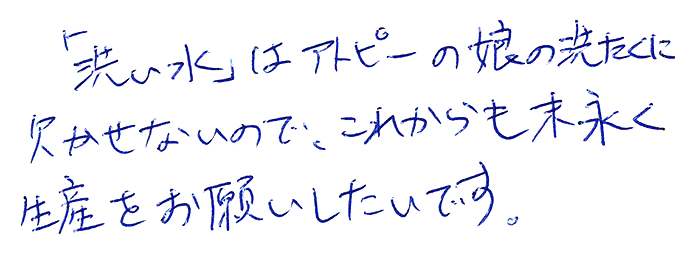 「洗い水」はアトピーの娘の洗たくに
欠かせないので、これからも末永く
生産をお願いしたいです。